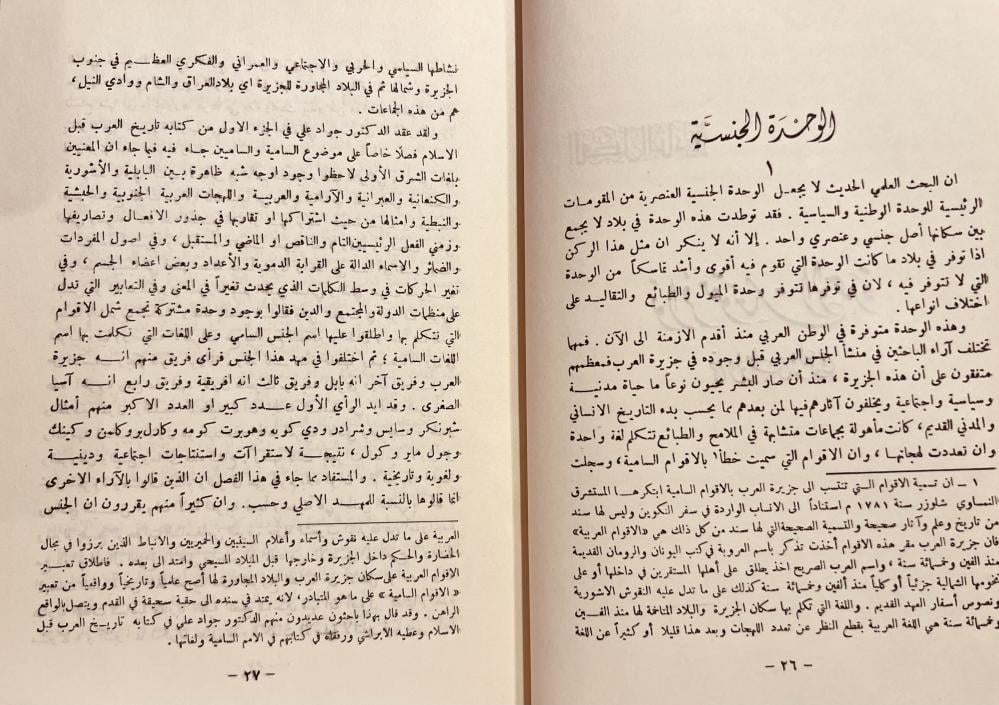 الوحدة الجنسيَّة
١
ان البحث العلمي الحديث لا يجعل الوحدة الجنسية العنصرية من المقومات
الرئيسية للوحدة الوطنية والسياسية . فقد توطدت هذه الوحدة في بلاد لا يجمع
بين سكانها أصل جنسي وعنصري واحد . إلا أنه لا ينكر ان مثل هذا الركن
اذا توفر في بلاد ما كانت الوحدة التي تقوم فيه أقوى وأشد تماسكاً من الوحدة
التي لا تتوفر فيه ، لان في توفرها تتوفر وحدة الميول والطبائع والتقاليد على
اختلاف انواعها .
وهذه الوحدة متوفرة في الوطن العربي منذ أقدم الازمنة الى الآن . فمهما
تختلف آراء الباحثين في منشأ الجنس العربي قبل وجوده في جزيرة العرب فمعظمهم
متفقون على أن هذه الجزيرة ، منذ أن صار البشر يحيون نوعاً ما حياة مدنية
وسياسية واجتماعية ويخلفون آثارهم فيها لمن بعدهم مما يحسب بدء التاريخ الانساني
والمدني القديم ، كانت مأهولة بجماعات متشابهة في الملامح والطبائع تتكلم لغة واحدة
وان تعددت لهجاتها ، وان الاقوام التي سميت خطأ١ بالاقوام السامية ، وسجلت
١ – ان تسمية الاقوام التي تنتسب الى جزيرة العرب بالاقوام السامية ابتكرها المستشرق
النمساوي شلوزر سنة ١٧٨١ م استناداً الى الانساب الواردة في سفر التكوين وليس لها سند
من تاريخ وعلم وآثار صحيحة والتسمية الصحيحة التي لها سند من كل ذلك هي «الاقوام العربية»
فان جزيرة العرب مقر هذه الاقوام أخذت تذكر باسم العروبة في كتب اليونان والرومان القديمة
منذ الفين وخمسمائة سنة ، واسم العرب الصريح اخذ يطلق على أهلها المستقرين في داخلها أو على
تخومها الشمالية جزئياً أو كلياً منذ ألفين وخمسمائة سنة كذلك على ما تدل عليه النقوش الاشورية
ونصوص أسفار العهد القديم . واللغة التي تكلم بها سكان الجزيرة والبلاد المتاخمة لها منذ الفين
وخمسمائة سنة هي اللغة العربية بقطع النظر عن تعدد اللهجات وبعد هذا قليلا أو كثيراً عن اللغة
– ٢٦ –
نشاطها السياسي والحربي والاجتماعي والعمراني والفكري العظيم في جنوب
الجزيرة وشمالها ثم في البلاد المجاورة للجزيرة اي بلاد العراق والشام ووادي النيل ،
هم من هذه الجماعات .
ولقد عقد الدكتور جواد علي في الجزء الاول من كتابه تاريخ العرب قبل
الاسلام فصلًا خاصاً على موضوع السامية والساميين جاء فيه فيما جاء ان المعنيين
بلغات الشرق الأولى لاحظوا وجود اوجه شبه ظاهرة بين البابلية والأشورية
والكنعانية والعبرانية والآرامية والعربية واللهجات العربية الجنوبية والحبشية
والنبطية وامثالها من حيث اشتراكها او تقاربها في جذور الافعال وتصاريفها
وزمني الفعلي الرئيسيين التام والناقص او الماضي والمستقبل ، وفي اصول المفردات
والضمائر والاسماء الدالة على القرابة الدموية والأعداد وبعض اعضاء الجسم ، وفي
تغير الحركات في وسط الكلمات الذي يحدث تغيراً في المعنى وفي التعابير التي تدل
على منظمات الدولة والمجتمع والدين فقالوا بوجود وحدة مشتركة تجمع شمل الاقوام
التي تتكلم بها واطلقوا عليها اسم الجنس السامي وعلى اللغات التي تكلمت بها اسم
اللغات السامية ؛ ثم اختلفوا في مهد هذا الجنس فرأى فريق منهم انه جزيرة
العرب وفريق آخر انه بابل وفريق ثالث انه افريقية وفريق رابع انه آسيا
الصغرى . وقد ايد الرأي الأول عدد كبير او العدد الاكبر منهم أمثال
شبرنكر وسايس وشرادر ودي كويه وهوبرت كومه وكارل بروكلمن وكينك
وجول ماير وكول ، نتيجة لاستقراآت واستنتاجات اجتماعية ودينية
ولغوية وتاريخية . والمستفاد مما جاء في هذا الفصل ان الذين قالوا بالآراء الاخرى
انما قالوها بالنسبة للمهد الاصلي وحسب . وان كثيراً منهم يقررون ان الجنس
العربية على ما تدل عليه نقوش وأسماء وأعلام السبئيين والحميريين والانباط الذين برزوا في مجال
الحضارة والحكم داخل الجزيرة وخارجها قبل الميلاد المسيحي وامتد الى بعده . فاطلاق تعبير
الاقوام العربية على سكان جزيرة العرب والبلاد المجاورة لها أصح علمياً وتاريخياً وواقعياً من تعبير
« الاقوام السامية » على ما هو المتبادر، لانه يمتد في سنده الى حقبة سحيقة في القدم ويتصل بالواقع
الراهن . وقد قال بهذا باحثون عديدون منهم الدكتور جواد علي في كتابه تاريخ العرب قبل
الاسلام وعطيه الابراشي ورفقاه في كتابهم في الامم السامية ولغاتها .
– ٢٧ –